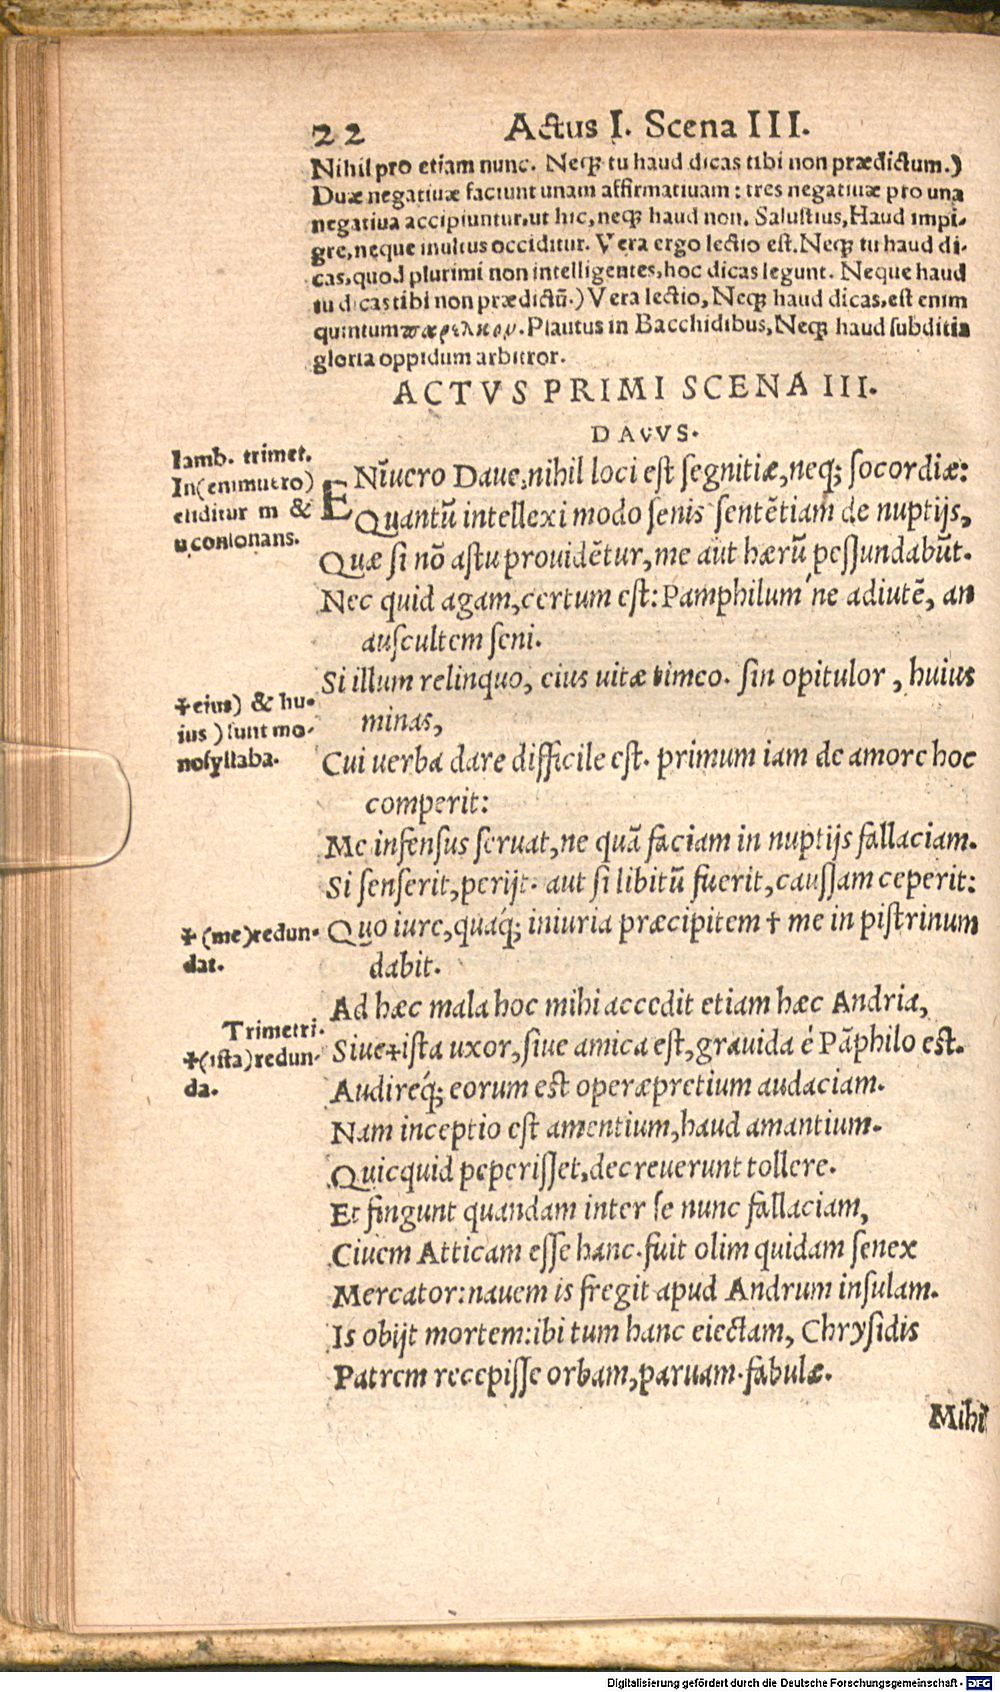 22 Actus I. Scena III.
Nihil pro etiam nunc. Neq; tu haud dicas tibi non prædictum.)
Duæ negatiuæ faciunt unam affirmatiuam: tres negatiuæ pro una
negatiua accipiuntur, ut hic, neq; haud non. Salustius, Haud impi-
gre, neque inultus occiditur. Vera ergo lectio est. Neq; tu haud di-
cas, quod plurimi non intelligentes, hoc dicas legunt. Neque haud
tu dicas tibi non prædictũ.) Vera lectio, Neq; haud dicas, est enim
quintum παρέλκον. Plautus in Bacchidibus, Neq; haud subditia
gloria oppidum arbitror.
ACTVS PRIMI SCENA III.
DAVVS.
Iamb. trimet.
In (enimuero)
eliditur m &
u consonans.
ENĩuero Daue, nihil loci est ſegnitiæ, neq; ſocordiæ:
Quantũ intellexi modo ſenis ſentẽtiam de nuptijs,
Quæ ſi nõ aſtu prouidẽtur, me aut hærũ peſſundabũt.
Nec quid agam, certum eſt: Pamphilum'ne adiutẽ, an
auſcultem ſeni.
Si illum relinquo, eius uitæ timeo. ſin opitulor, huius
minas,
✝eius) & hu-
ius) sunt mo-
nosyllaba.
Cui uerba dare difficile eſt. primum iam de amore hoc
comperit:
Me infenſus ſeruat, ne quã faciam in nuptijs fallaciam.
Si ſenſerit, perij. aut ſi libitũ fuerit, cauſſam ceperit:
✝(me) redun-
dat.
Quo iure, quáq; iniuria præcipitem ✝ me in piſtrinum
dabit.
Ad hæc mala hoc mihi accedit etiam hæc Andria,
Trimetri.
✝(ista) redun-
da.
Siue✝iſta uxor, ſiue amica eſt, grauida é Pãphilo eſt.
Audireq́; eorum eſt operæpretium audaciam.
Nam inceptio eſt amentium, haud amantium.
Quicquid peperiſſet, decreuerunt tollere.
Et fingunt quandam inter ſe nunc fallaciam,
Ciuem Atticam eſſe hanc. fuit olim quidam ſenex
Mercator: nauem is fregit apud Andrum inſulam.
Is obijt mortem: ibi tum hanc eiectam, Chryſidis
Patrem recepiſſe orbam, paruam. fabulæ.
Mihi
Digitalisierung gefördert durch die Deutsche Forschungsgemeinschaft - DFG